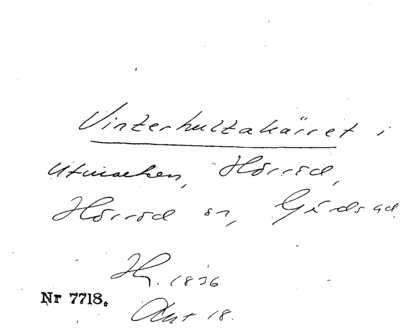 Vinterhultakärret i
Utmarken, Hörröd,
Hörröd sn, Gärds hd
H. 1836
Akt 18.
Nr 7718.